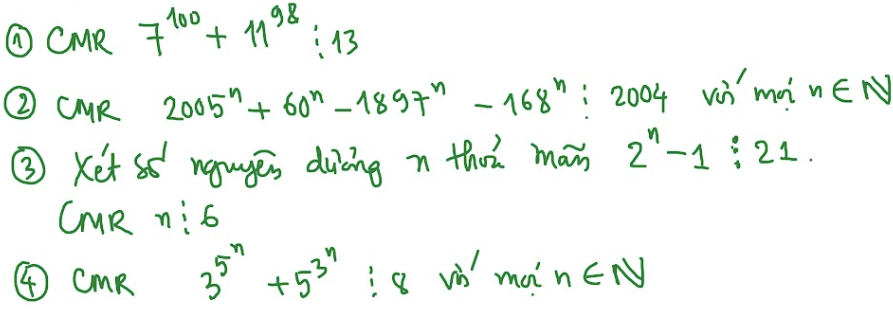 ① CMR 7^100 + 11^98 ⋮ 13
② CMR 2005^n + 60^n − 1897^n − 168^n ⋮ 2004 với mọi n ∈ ℕ
③ Xét số nguyên dương n thoả mãn 2^n − 1 ⋮ 21.
CMR n ⋮ 6
④ CMR 3^5^n + 5^3^n ⋮ 8 với mọi n ∈ ℕ